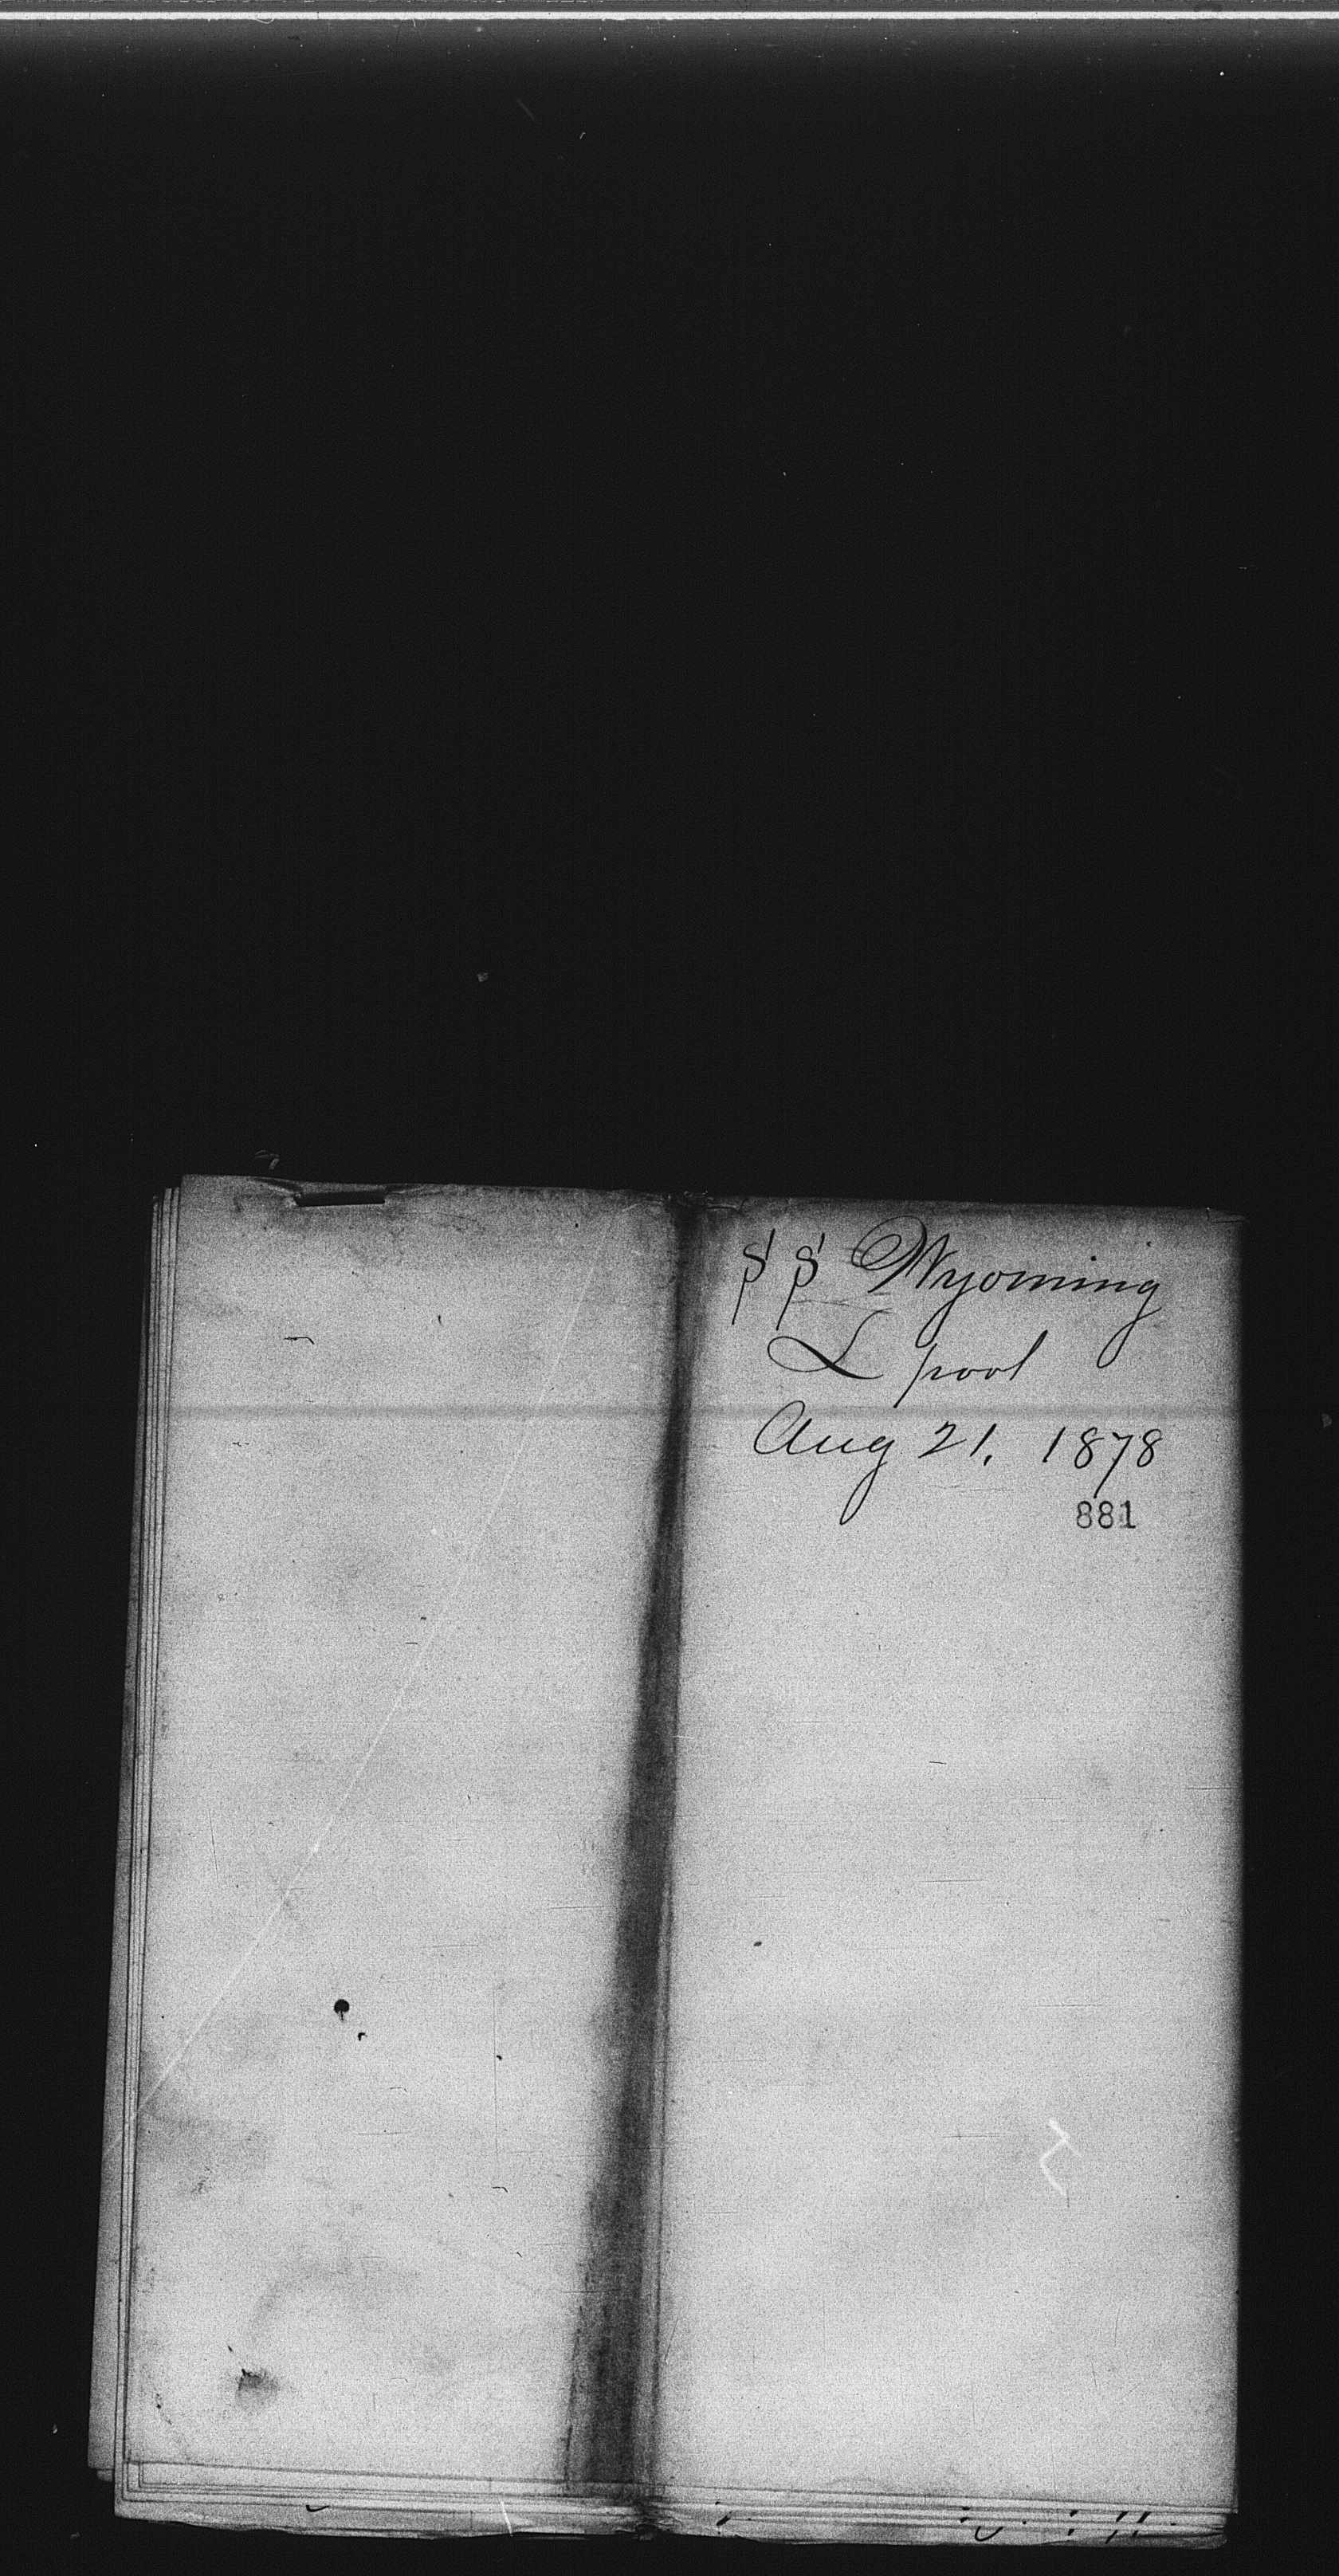 SS Wyoming
L pool
Aug 21. 1878
881